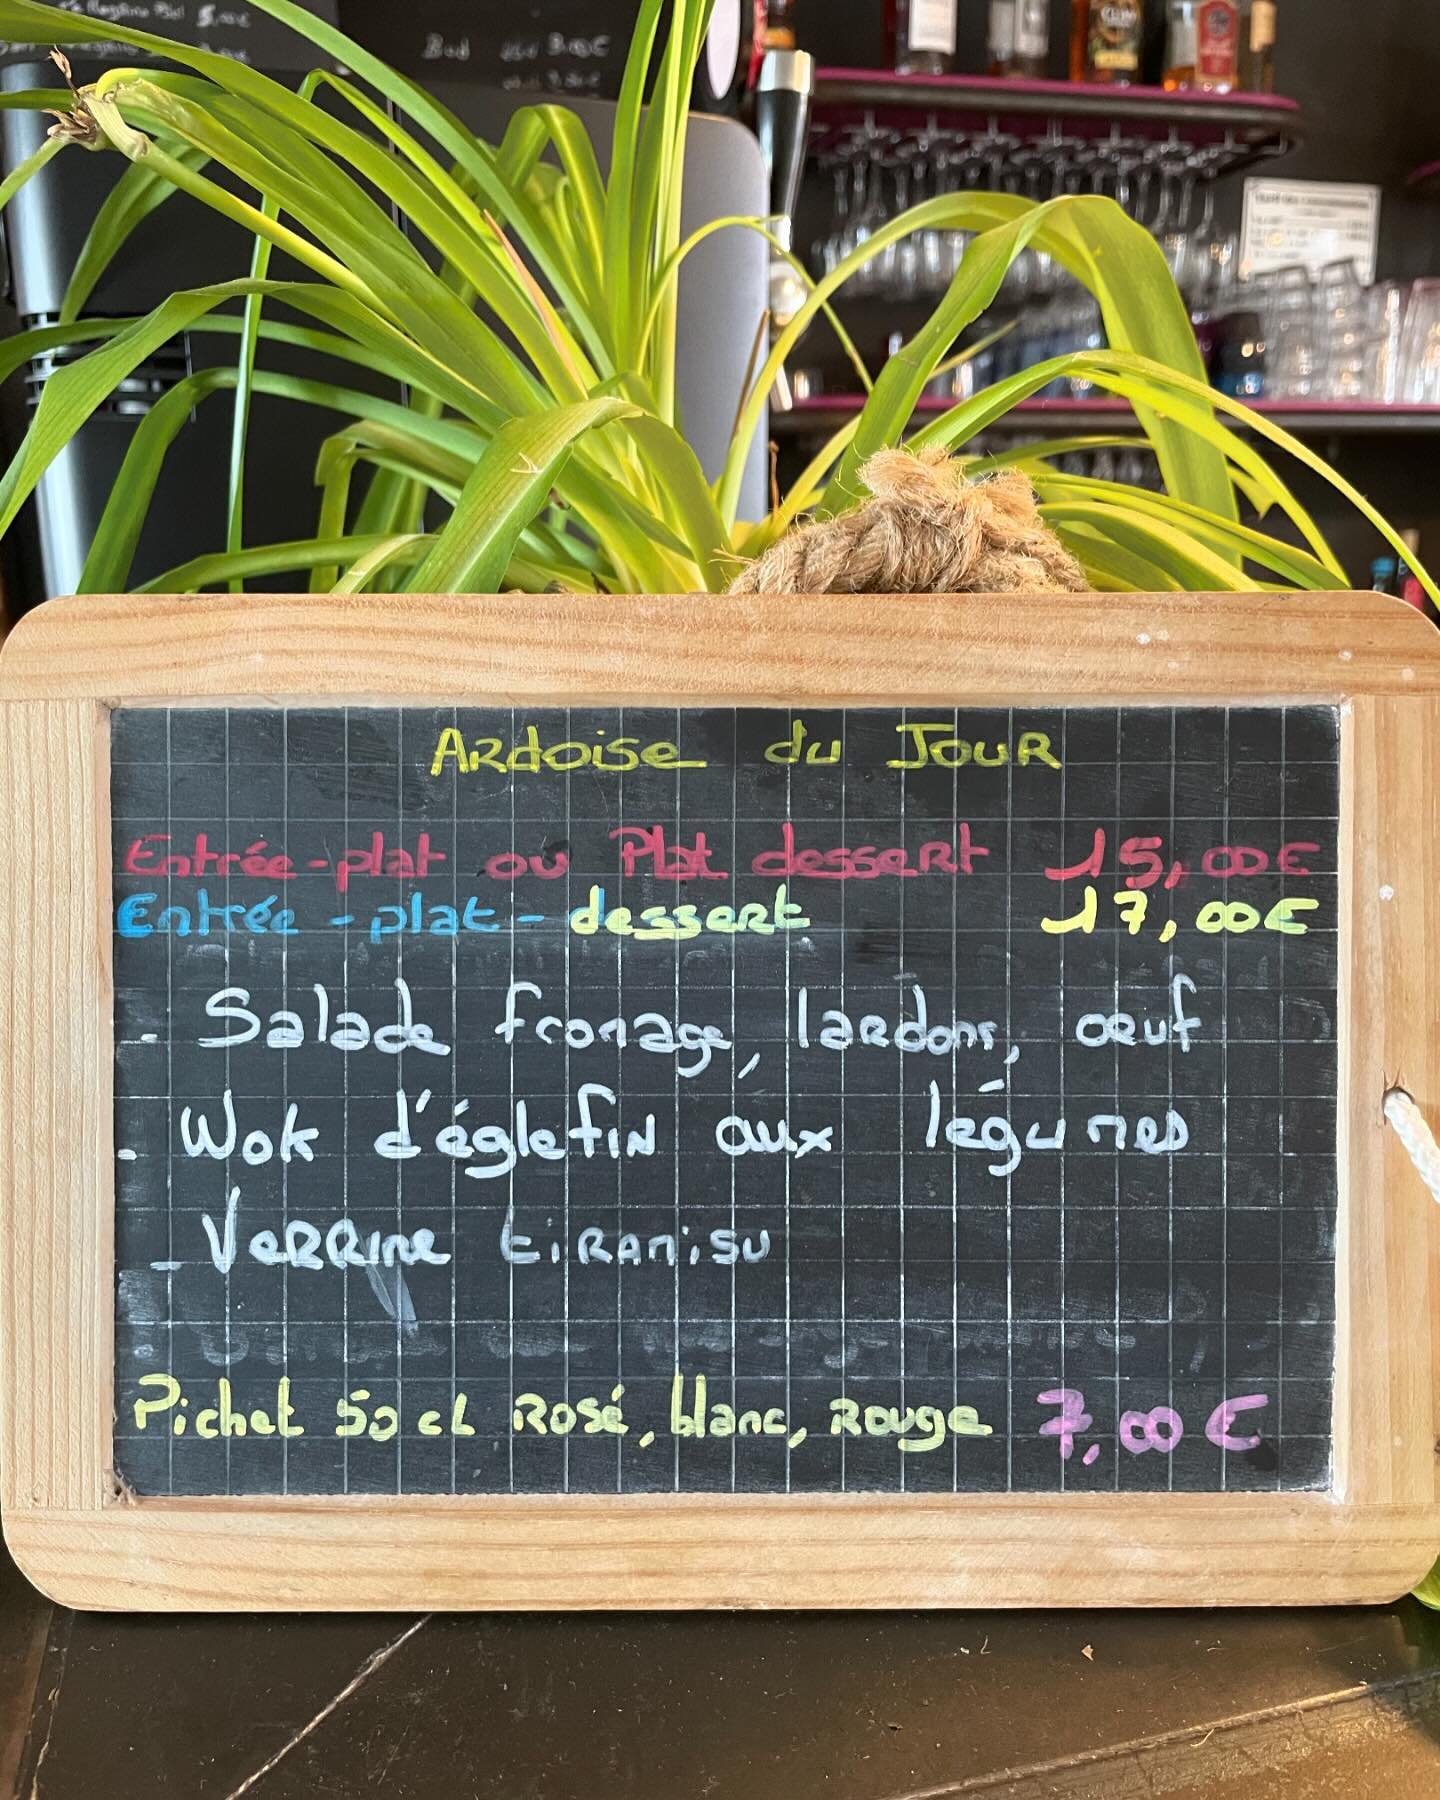 Bud
Ardoise du Jour
Entrée-plat ou Plat dessert 15,00€
Entrée - plat - dessert 17,00€
- Salade fromage, lardons, œuf
- Wok d'églefin aux légumes
- Verrine tiramisu
Pichet 50 cl Rosé, blanc, Rouge 7,00 €